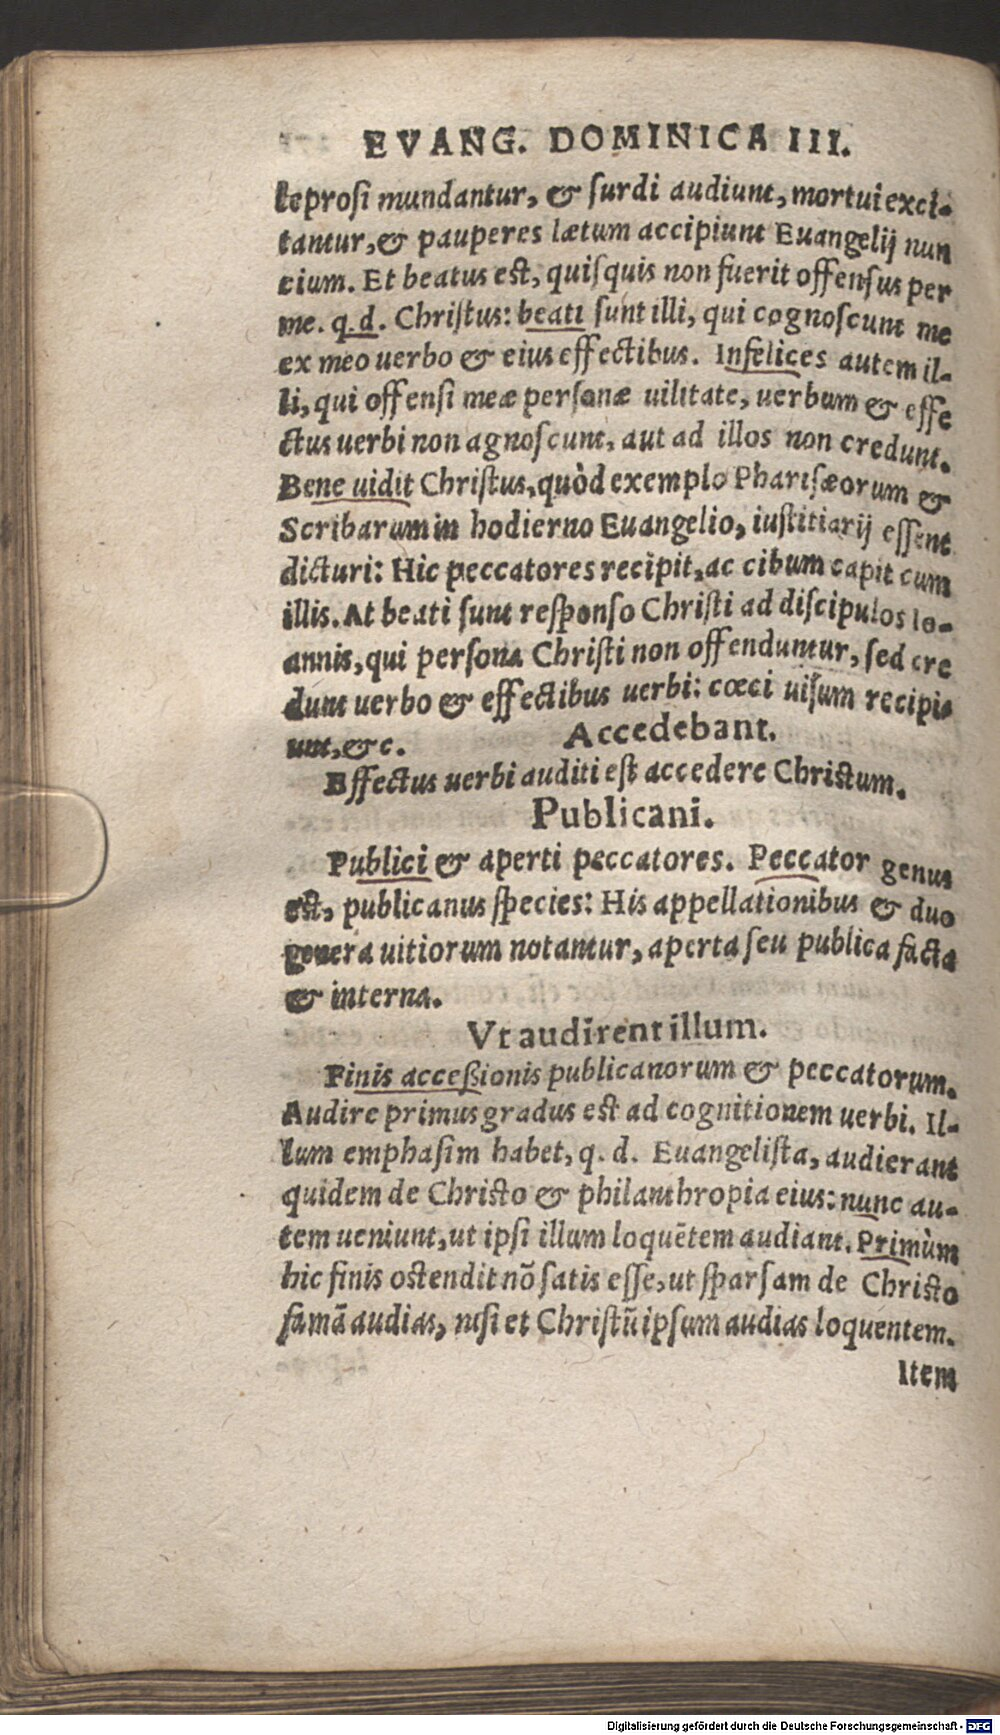 EVANG. DOMINICA III.
leprosi mundantur, & ſurdi audiunt, mortui exci-
tantur, & pauperes lætum accipiunt Euangelij nun
cium. Et beatus est, quiſquis non fuerit offenſus per
me. q.d. Chriſtus: beati ſunt illi, qui cognoſcunt me
ex meo uerbo & eius effectibus. Infelices autem il-
li, qui offenſi meæ perſonæ uilitate, uerbum & effe
ctus uerbi non agnoſcunt, aut ad illos non credunt.
Bene uidit Chriſtus, quòd exemplo Phariſæorum &
Scribarum in hodierno Euangelio, iuſtitiarij eſſent
dicturi: Hic peccatores recipit, ac cibum capit cum
illis. At beati ſunt reſponſo Chriſti ad diſcipulos Io-
annis, qui perſona Chriſti non offenduntur, ſed cre
dunt uerbo & effectibus uerbi: cœci uiſum recipi-
unt, &c.
Accedebant.
Effectus uerbi auditi eſt accedere Chriſtum.
Publicani.
Publici & aperti peccatores. Peccator genus
eſt, publicanus ſpecies: His appellationibus & duo
genera uitiorum notantur, aperta ſeu publica facta
& interna.
Vt audirent illum.
Finis acceßionis publicanorum & peccatorum.
Audire primus gradus eſt ad cognitionem uerbi. Il-
lum emphaſim habet, q. d. Euangeliſta, audierant
quidem de Chriſto & philanthropia eius: nunc au-
tem ueniunt, ut ipſi illum loquẽtem audiant. Primùm
hic finis oſtendit nõ ſatis eſſe, ut ſparſam de Chriſto
famã audias, niſi et Chriſtũ ipſum audias loquentem.
Item
Digitalisierung gefördert durch die Deutsche Forschungsgemeinschaft - DFG